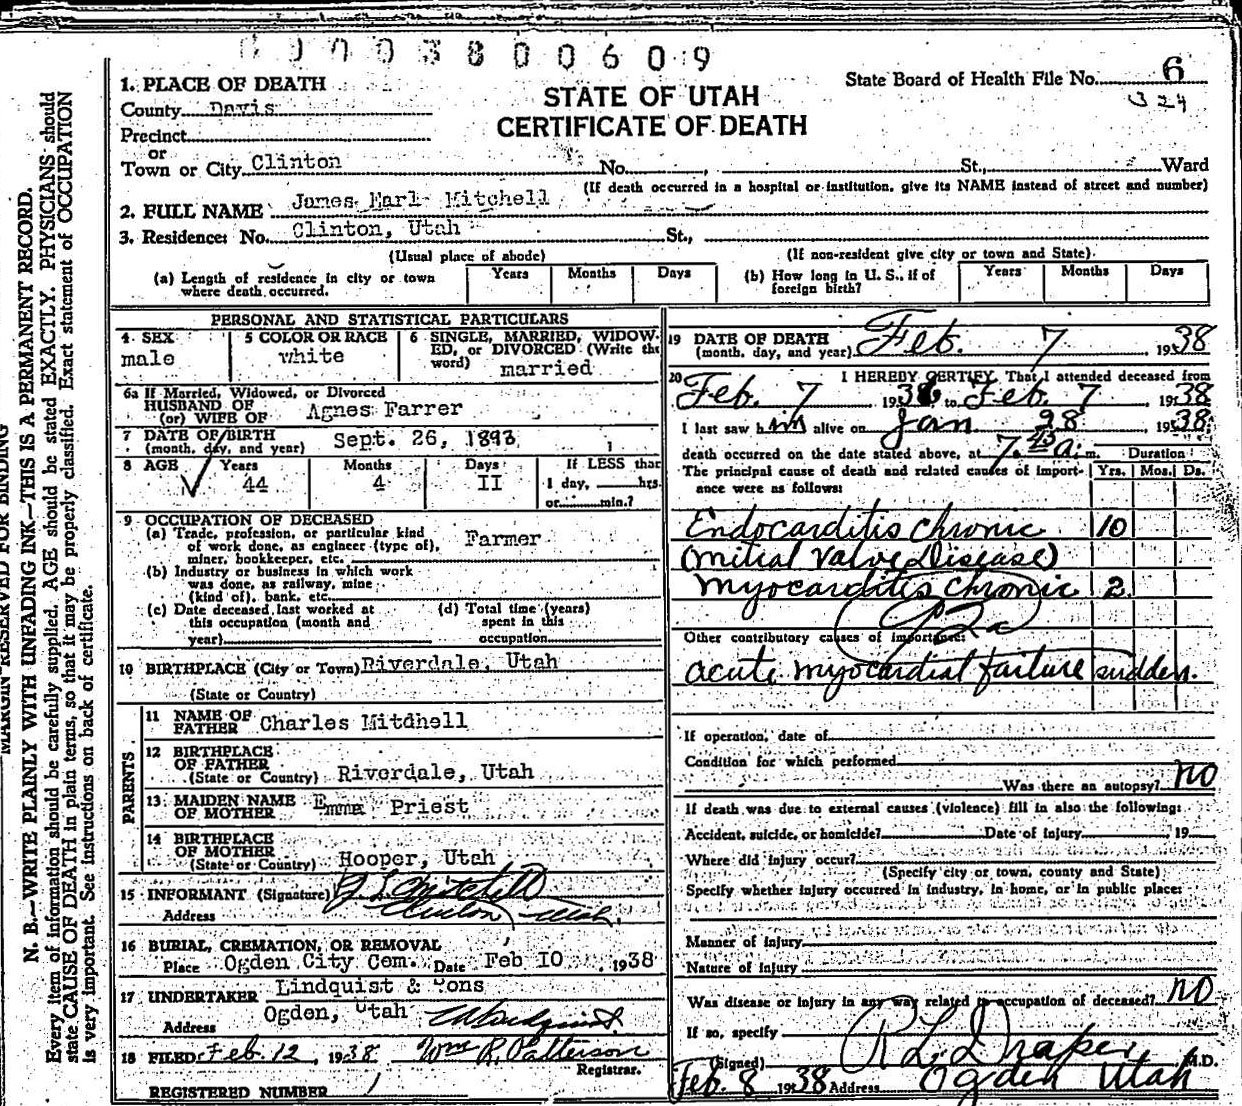 00003800609
State Board of Health File No. 6
324
STATE OF UTAH
CERTIFICATE OF DEATH
1. PLACE OF DEATH
County Davis
Precinct
or
Town or City Clinton No. St., Ward
(If death occurred in a hospital or institution, give its NAME instead of street and number)
2. FULL NAME James Earl Mitchell
3. Residence: No. Clinton, Utah St.,
(Usual place of abode) (If non-resident give city or town and State)
(a) Length of residence in city or town where death occurred. Years Months Days (b) How long in U. S., if of foreign birth? Years Months Days
PERSONAL AND STATISTICAL PARTICULARS
4 SEX
male
5 COLOR OR RACE
white
6 SINGLE, MARRIED, WIDOW-
ED, or DIVORCED (Write the
word) married
6a If Married, Widowed, or Divorced
HUSBAND OF
(or) WIFE OF Agnes Farrer
7 DATE OF BIRTH
(month, day, and year) Sept. 26, 1893
8 AGE Years Months Days If LESS than
44 4 II 1 day, hrs.
or min.?
9 OCCUPATION OF DECEASED
(a) Trade, profession, or particular kind
of work done, as engineer (type of),
miner, bookkeeper, etc. Farmer
(b) Industry or business in which work
was done, as railway, mine
(kind of), bank, etc.
(c) Date deceased last worked at
this occupation (month and
year)
(d) Total time (years)
spent in this
occupation
10 BIRTHPLACE (City or Town) Riverdale, Utah
(State or Country)
PARENTS
11 NAME OF
FATHER Charles Mitdhell
12 BIRTHPLACE
OF FATHER
(State or Country) Riverdale, Utah
13 MAIDEN NAME
OF MOTHER Emma Priest
14 BIRTHPLACE
OF MOTHER
(State or Country) Hooper, Utah
15 INFORMANT (Signature) J L Mitchell
Address Clinton, Utah,
16 BURIAL, CREMATION, OR REMOVAL
Place Ogden City Cem. Date Feb IO, 1938
17 UNDERTAKER Lindquist & Sons
Address Ogden, Utah
18 FILED Feb. 12, 1938 Wm R. Patterson
Registrar.
REGISTERED NUMBER 1
19 DATE OF DEATH
(month, day, and year) Feb. 7, 1938
20 I HEREBY CERTIFY, That I attended deceased from
Feb. 7 1936 to Feb. 7 1938
I last saw him alive on Jan 28 1938
death occurred on the date stated above, at 7.45 a. m. Duration
The principal cause of death and related causes of import- Yrs. Mos. Ds.
ance were as follows:
Endocarditis chronic 10
(Mitral Valve Disease)
Myocarditis chronic 2
Other contributory causes of importance:
acute myocardial failure sudden.
If operation, date of
Condition for which performed
Was there an autopsy? no
If death was due to external causes (violence) fill in also the following:
Accident, suicide, or homicide? Date of Injury , 19
Where did injury occur?
(Specify city or town, county and State)
Specify whether injury occurred in industry, in home, or in public place:
Manner of Injury
Nature of Injury
Was disease or injury in any way related to occupation of deceased? no
If so, specify
(Signed) R L. Draper, M.D.
Feb. 8 1938 Address Ogden Utah
MARGIN RESERVED FOR BINDING
N. B.—WRITE PLAINLY WITH UNFADING INK—THIS IS A PERMANENT RECORD.
Every item of information should be carefully supplied. AGE should be stated EXACTLY. PHYSICIANS should
state CAUSE OF DEATH in plain terms, so that it may be properly classified. Exact statement of OCCUPATION
is very important. See instructions on back of certificate.